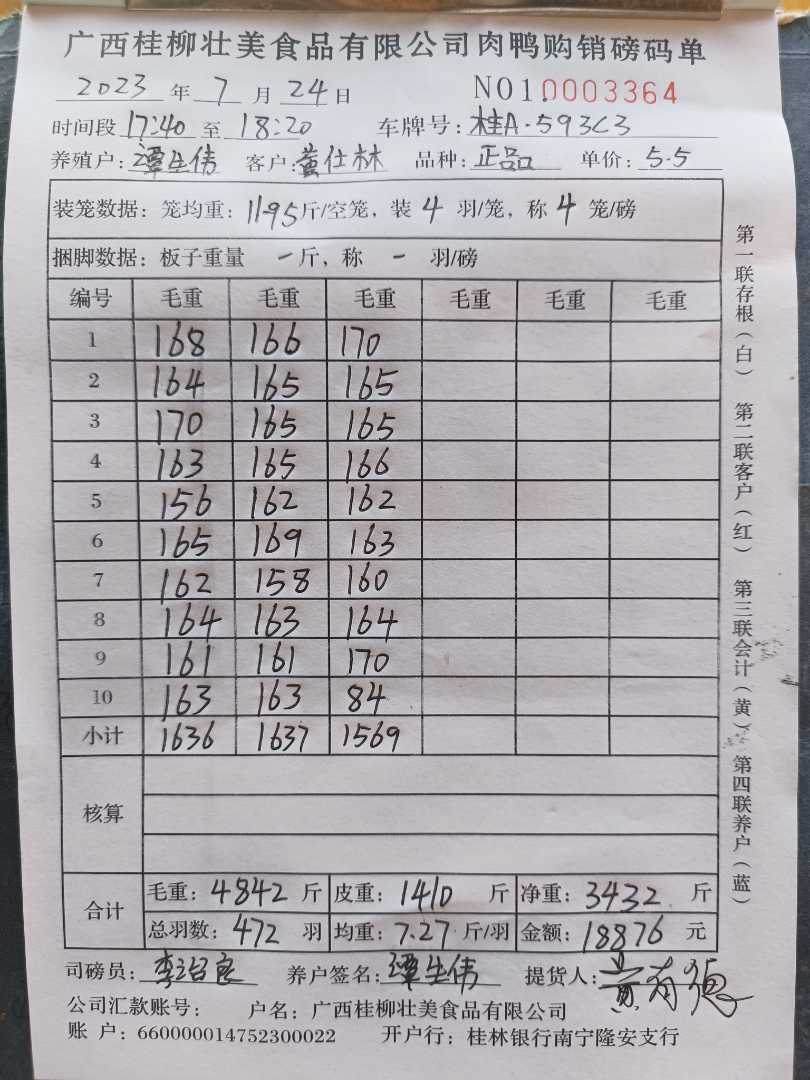 广西桂柳壮美食品有限公司肉鸭购销磅码单
2023 年 7 月 24 日 NO1.0003364
时间段 17:40 至 18:20 车牌号: 桂A·593C3
养殖户: 谭生伟 客户: 黄仕林 品种: 正品 单价: 5.5
装笼数据: 笼均重: 11.95 斤/空笼, 装 4 羽/笼, 称 4 笼/磅
捆脚数据: 板子重量 — 斤, 称 — 羽/磅
编号 毛重 毛重 毛重 毛重 毛重 毛重
1 168 166 170
2 164 165 165
3 170 165 165
4 163 165 166
5 156 162 162
6 165 169 163
7 162 158 160
8 164 163 164
9 161 161 170
10 163 163 84
小计 1636 1637 1569
核算
合计 毛重: 4842 斤 皮重: 1410 斤 净重: 3432 斤
总羽数: 472 羽 均重: 7.27 斤/羽 金额: 18876 元
司磅员: 养户签名: 谭生伟 提货人: 黄有德
公司汇款账号: 户名: 广西桂柳壮美食品有限公司
账 户: 660000014752300022 开户行: 桂林银行南宁隆安支行
第一联存根(白) 第二联客户(红) 第三联会计(黄) 第四联养户(蓝)